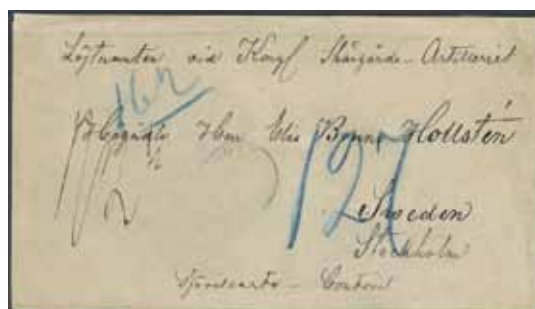 Löjtnanten vid Kongl Skärgårds-Artilleriet
162
Herr Elis Bruno Hollstén
127
Sweden
Stockholm